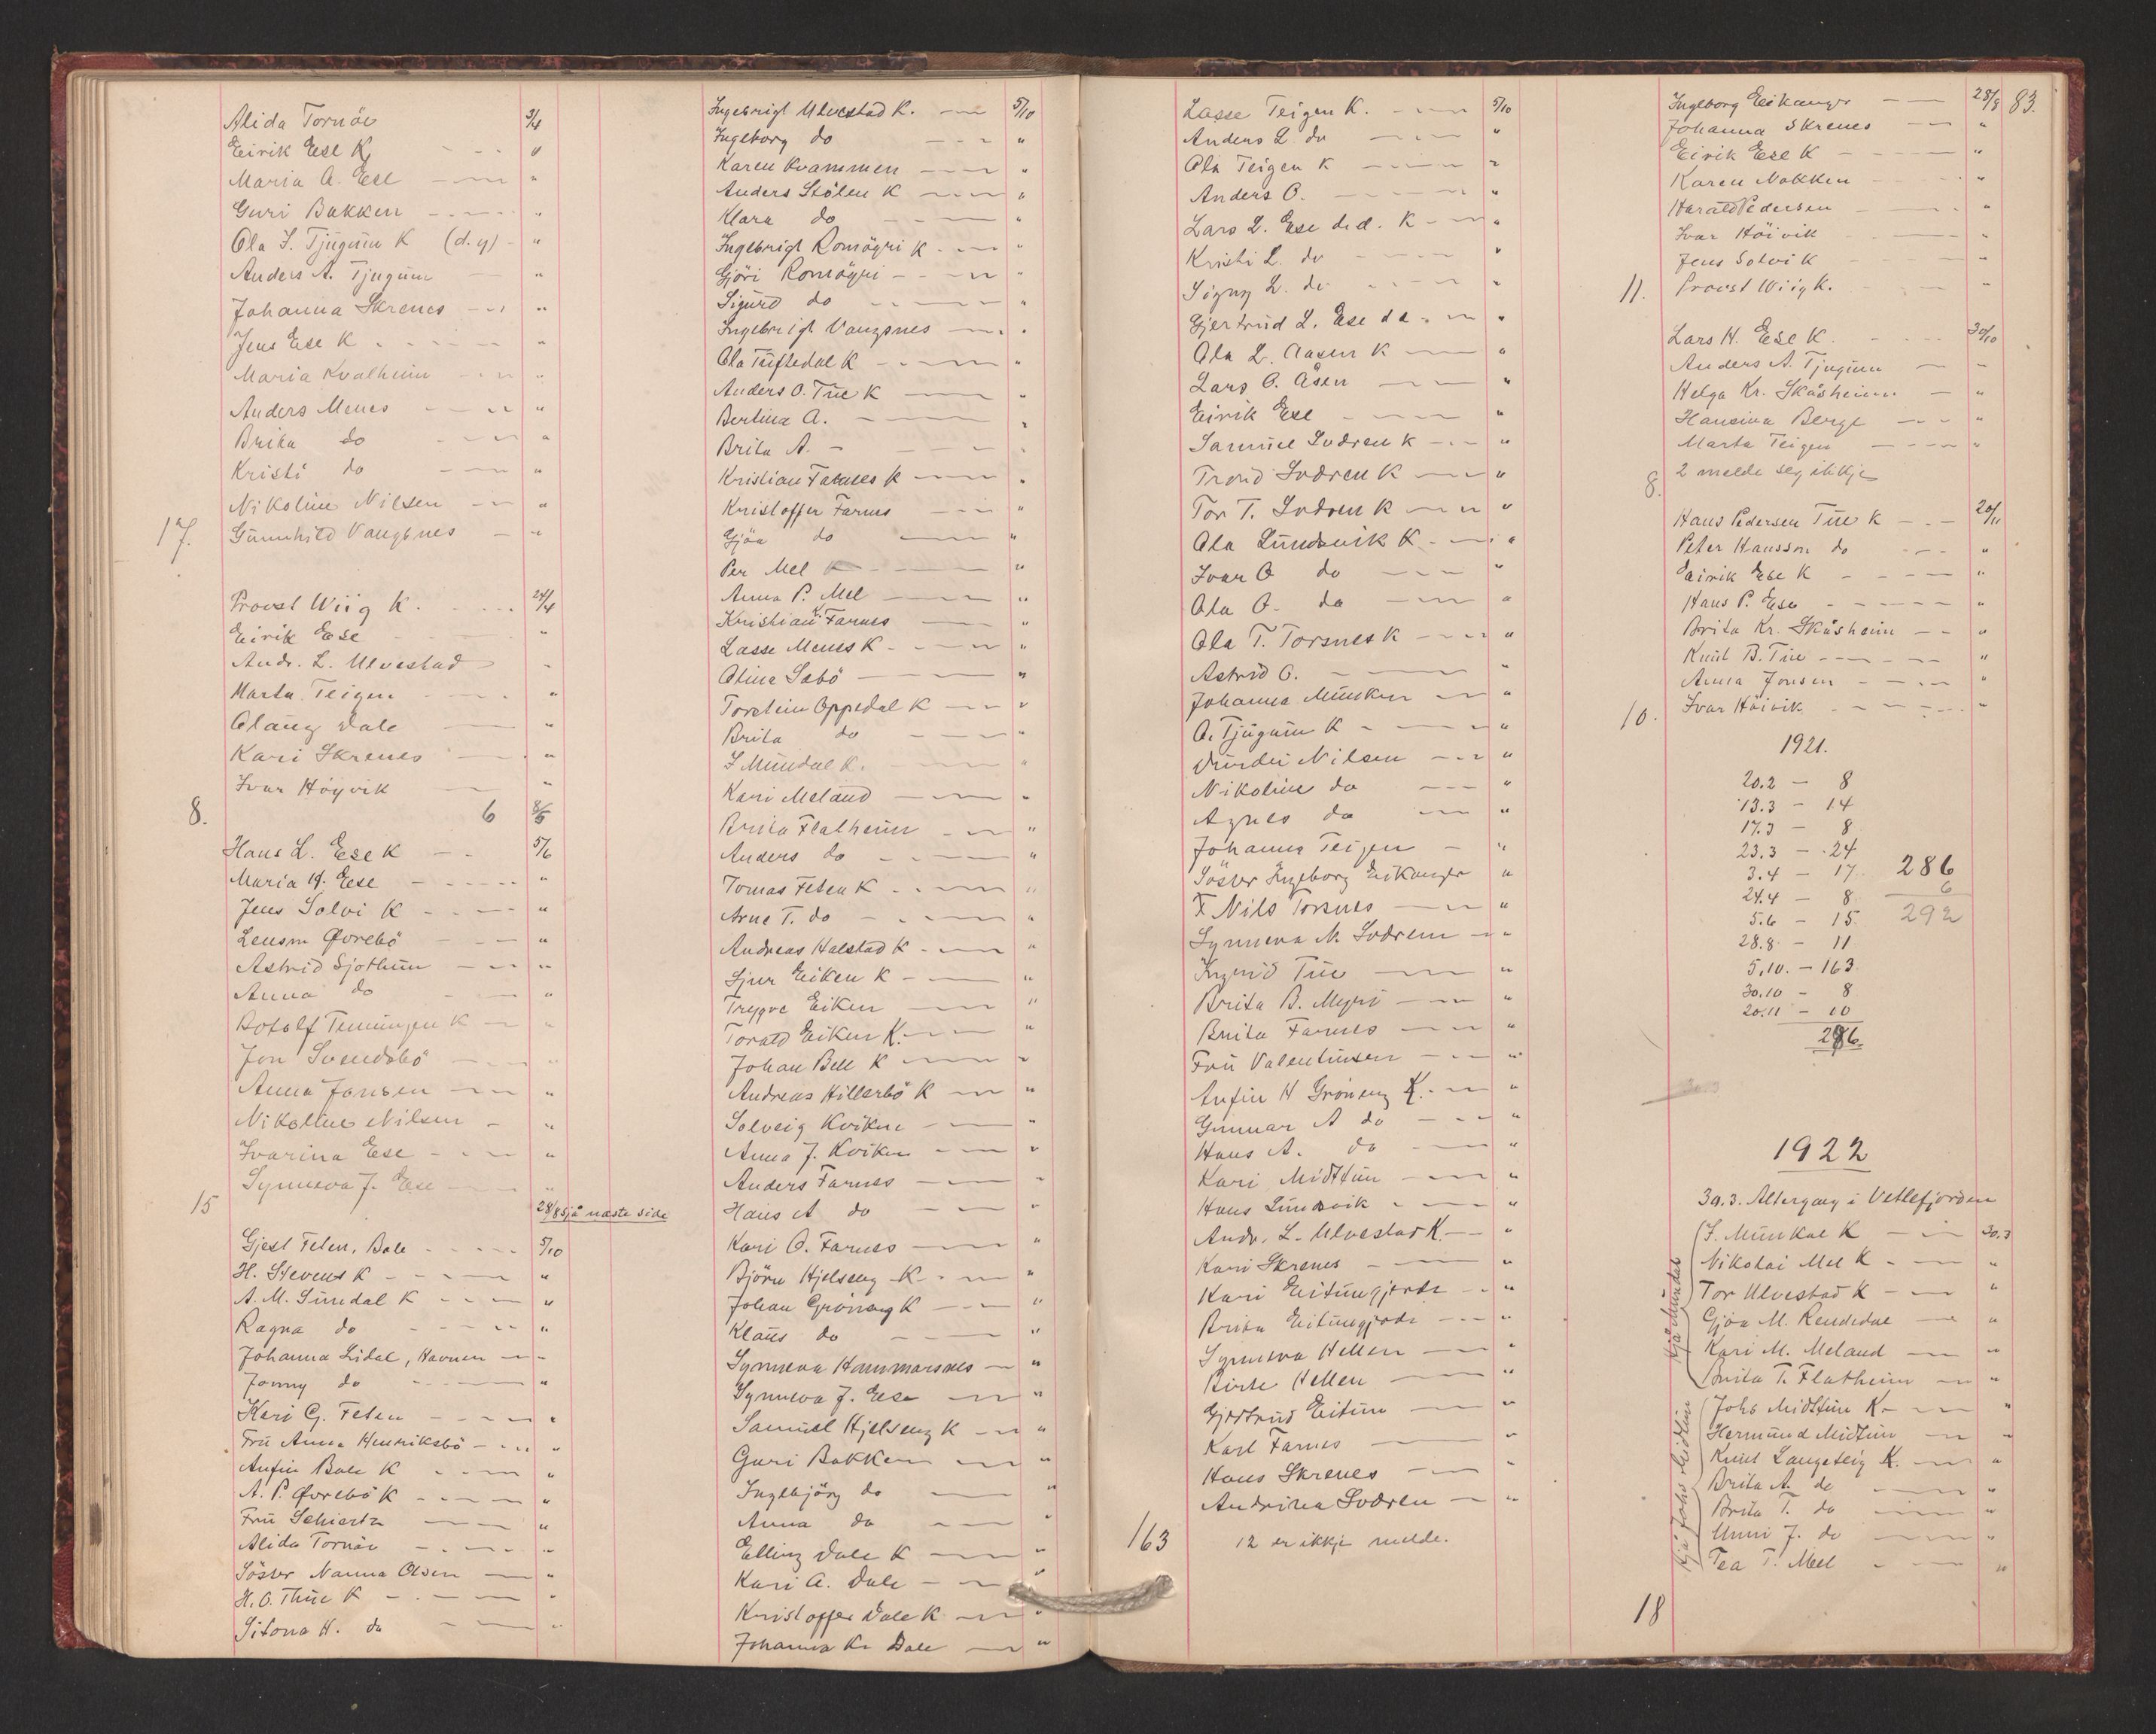 Alida Tornöe 3/4
Eirik Ese K "
Maria A. Ese "
Guri Bakken "
Ola I. Tjugum K (d.y) "
Anders A. Tjugum "
Johanna Skrenes "
Jens Ese K "
Maria Kvalheim "
Anders Menes "
Brita do "
Kristi do "
Nikoline Nilsen "
17. Gunnhild Vangsnes "
Provst Wiig K. 24/4
Eirik Ese "
Andr. L. Ulvestad "
Marta Teigen "
Olaug Dale "
Kari Skrenes "
Ivar Høyvik "
8. 6 8/5
Hans L. Ese K 5/6
Maria H. Ese "
Jens Solvi K "
Lensm Øvrebö "
Astrid Sjothun "
Anna do "
Botolf K "
Jon Svendsbö "
Anna Jonsen "
Nikoline Nilsen "
Ivarina Ese "
Synneva J. Ese "
15
28/8 sjå næste side
Gjest Feten, Bale 5/10
H. Stevens K "
A. M. Sundal K "
Ragna do "
Johanna Lidal, Havnen "
Jonny do "
Kari G. Feten "
Fru Anna Henriksbö "
Anfin Bale K "
A. P. Øvrebö K "
Fru Schiertz "
Alida Tornöe "
Söster Nanna Olsen "
H. O. Thue K "
H. do "
Ingebrigt Ulvestad K. 5/10
Ingeborg do "
Karen Kvammen "
Anders Stölen K "
Klara do "
Ingebrigt Romöyri K "
Gjöri Romöyri "
Sigurd do "
Ingebrigt Vangsnes "
Ola Tuftedal K "
Anders O. Tue K "
Bertina A. "
Brita A. "
Kristian Farnes K "
Kristoffer Farnes "
Gjöa do "
Per Mel K "
Anna P. Mel "
Kristian K. Farnes "
Lasse Menes K "
Olina Sabö "
Torstein Oppedal K "
Brita do "
I Mundal K. "
Kari Meland "
Brita Flatheim "
Anders do "
Tomas Feten K "
Arne T. do "
Andreas Halstad K "
Sjur Eiken K "
Trygve Eiken "
Torald Eiken K. "
Johan Bell K "
Andreas Hillerbö K "
Solveig Kvikne "
Anna J. Kvikne "
Anders Farnes "
Hans A do "
Kari O. Farnes "
Björn Hjelseng K "
Johan Grönseng K "
Klaus do "
Synneva Hammarsnes "
Synneva J. Ese "
Samuel Hjelseng K "
Guri Bakken "
Ingebjörg do "
Anna do "
Elling Dale K "
Kari A. Dale "
Kristoffer Dale K "
Johanna Kr Dale "
Lasse Teigen K. 5/10
Anders L. do "
Ola Teigen K "
Anders O. "
Lars L. Ese d.e. K "
Kristi L. do "
Signy L. do "
Gjertrud L. Ese d e "
Ola L. Aasen K "
Lars O. Åsen "
Eirik Ese "
Samuel Svdren K "
Trond Svdren K "
Tor T. Svdren K "
Ola Lundevik K "
Ivar O do "
Ola O. do "
Ola T. Torsnes K "
Astrid O. "
Johanna Munken "
O. Tjugum K "
Nilsen "
Nikoline do "
Agnes do "
Johanna Teigen "
Söster Ingeborg Eikanger "
F Nils Torsnes "
Synneva M. Svdren "
Ingrid Tue "
Brita B. Myri "
Brita Farnes "
Fru Valentinsen "
Anfin H Grönseng K. "
Gunnar A do "
Hans A. do "
Kari Midttun "
Hans Lundevik "
Andr. L. Ulvestad K. "
Kari Skrenes "
Kari Eitungjerde "
Brita Eitungjerde "
Synneva Hellen "
Birte Hellen "
Gjertrud Eitun "
Karl Farnes "
Hans Skrenes "
Andrina Svdren "
163 12 er ikkje melde.
Ingeborg Eikanger 28/8 83.
Johanna Skrenes "
Eirik Ese K "
Karen Nokken "
Harald Pedersen "
Ivar Höivik "
Jens Solvi K "
11. Provst Wiig K. "
Lars H. Ese K. 30/10
Anders A. Tjugum "
Helga Kr. Skåsheim "
Hansina Berge "
Marta Teigen "
8. 2 melde seg ikkje
Hans Pedersen Tue K 20/11
Peter Hansson do "
Eirik Ese K "
Hans P. Ese "
Brita Kr. Skåsheim "
Knut B. Tue "
Anna Jonsen "
10. Ivar Höivik "
1921.
20.2 - 8
13.3 - 14
17.3 - 8
23.3 - 24
3.4 - 17. 286
24.4 - 8 6
5.6 - 15. 292
28.8 - 11
5.10. - 163
30.10 - 8
20.11 - 10
286.
1922
30.3. Altergang i Vetlefjorden
Hjå Mundal
I. Mundal K 30.3
Nikolai Mel K "
Tor Ulvestad K "
Gjöa M. Rendedal "
Kari M. Meland "
Brita T. Flatheim "
Hjå Johs Midtun
Johs Midttun K. "
Hermund Midtun "
Knut Langeteig K. "
Brita A. do "
Brita T. do "
Unni J. do "
Tea T. Mel "
18